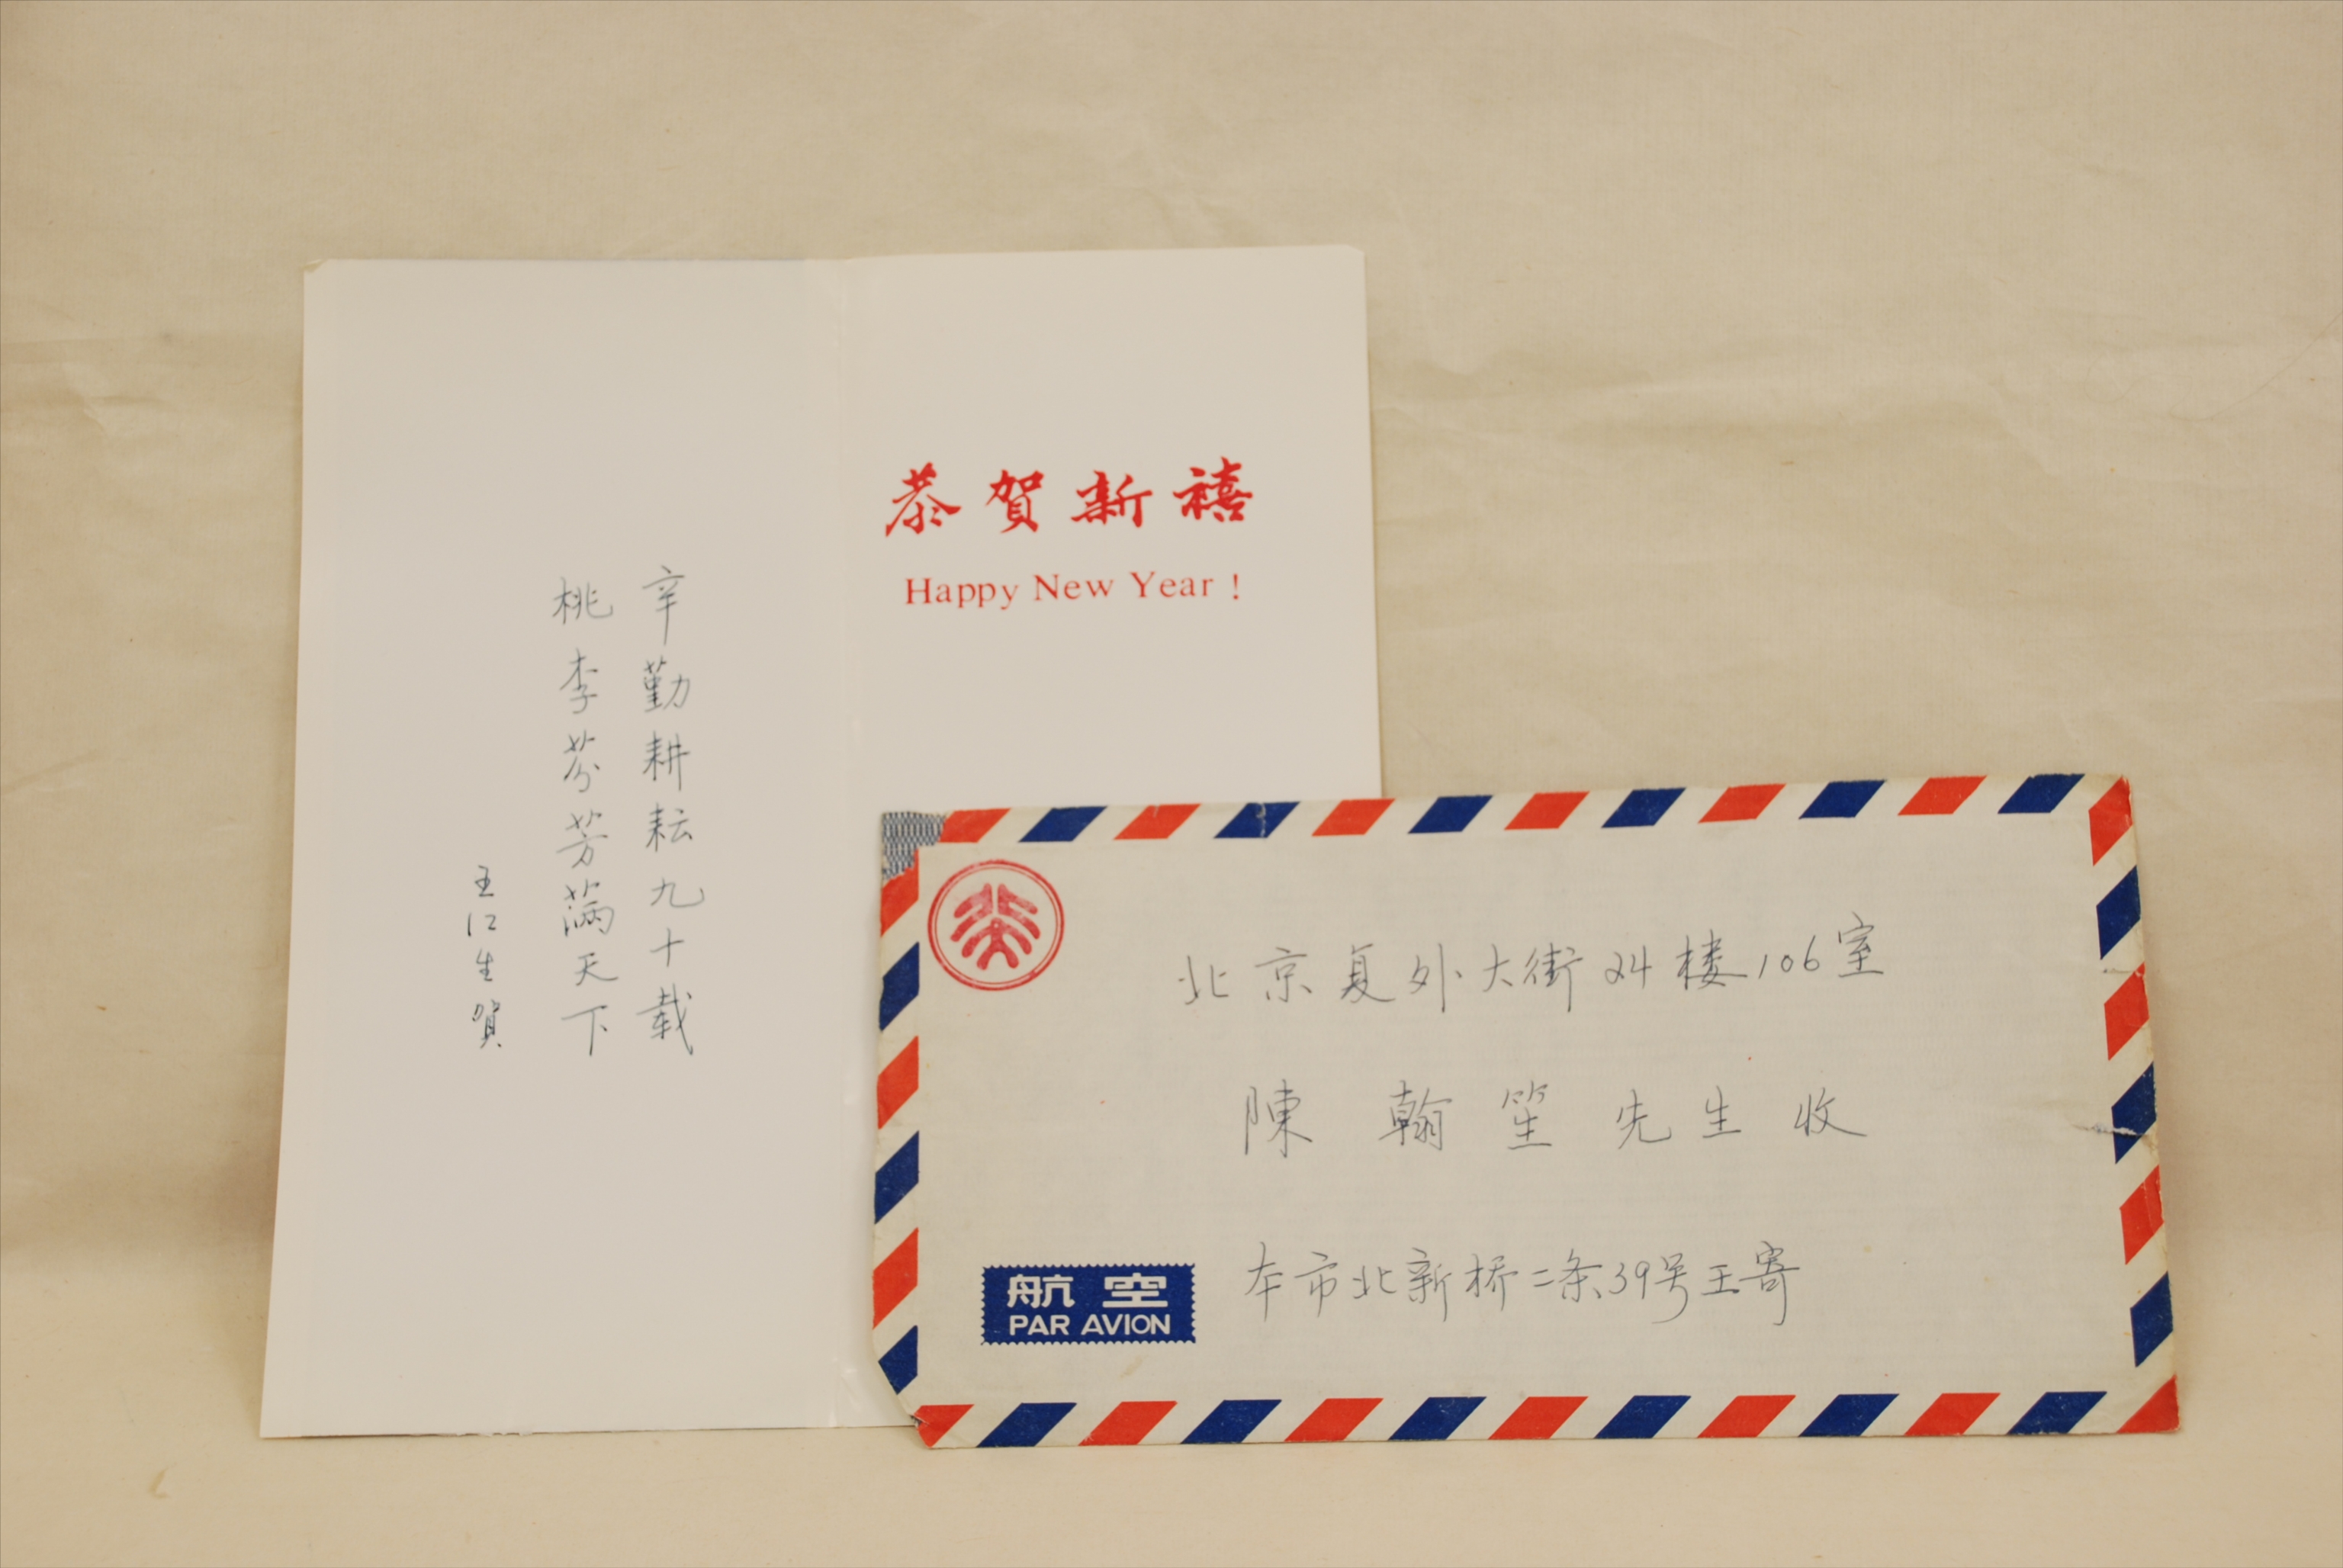 恭賀新禧
Happy New Year !
辛勤耕耘九十载
桃李芬芳满天下
王仁生賀
北京复外大街24楼106室
陳翰笙先生收
本市北新桥二条39号王寄
航空
PAR AVION